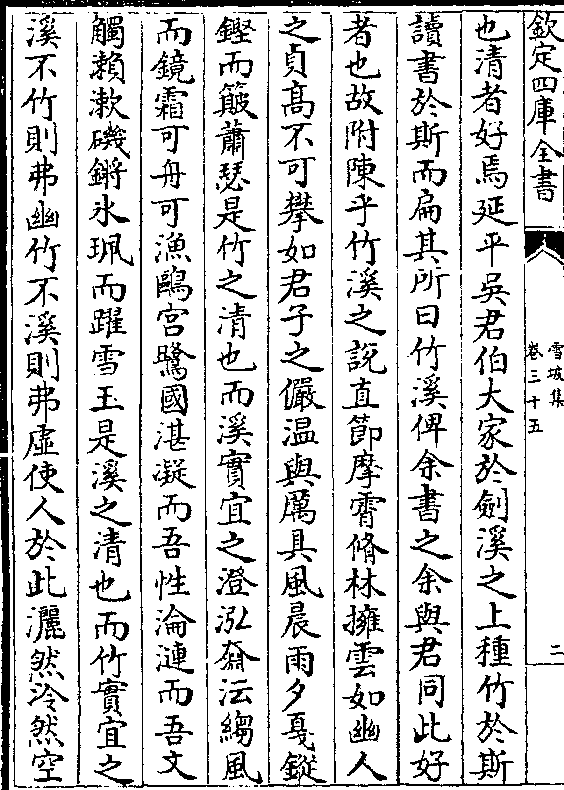 欽定四庫全書
雪坡集
卷三十五
二
也清者好焉延平吳君伯大家於劍溪之上種竹於斯
讀書於斯而扁其所曰竹溪俾余書之余與君同此好
者也故附陳乎竹溪之說直節摩霄脩林擁雲如幽人
之貞高不可攀如君子之儼温與厲具風晨雨夕戛鏦
鏗而簸蕭瑟是竹之清也而溪實宜之澄泓奫沄縐風
而鏡霜可舟可漁鷗宮鷺國湛凝而吾性淪漣而吾文
觸瀨漱磯鏘氷珮而躍雪玉是溪之清也而竹實宜之
溪不竹則弗幽竹不溪則弗虛使人於此灑然泠然空